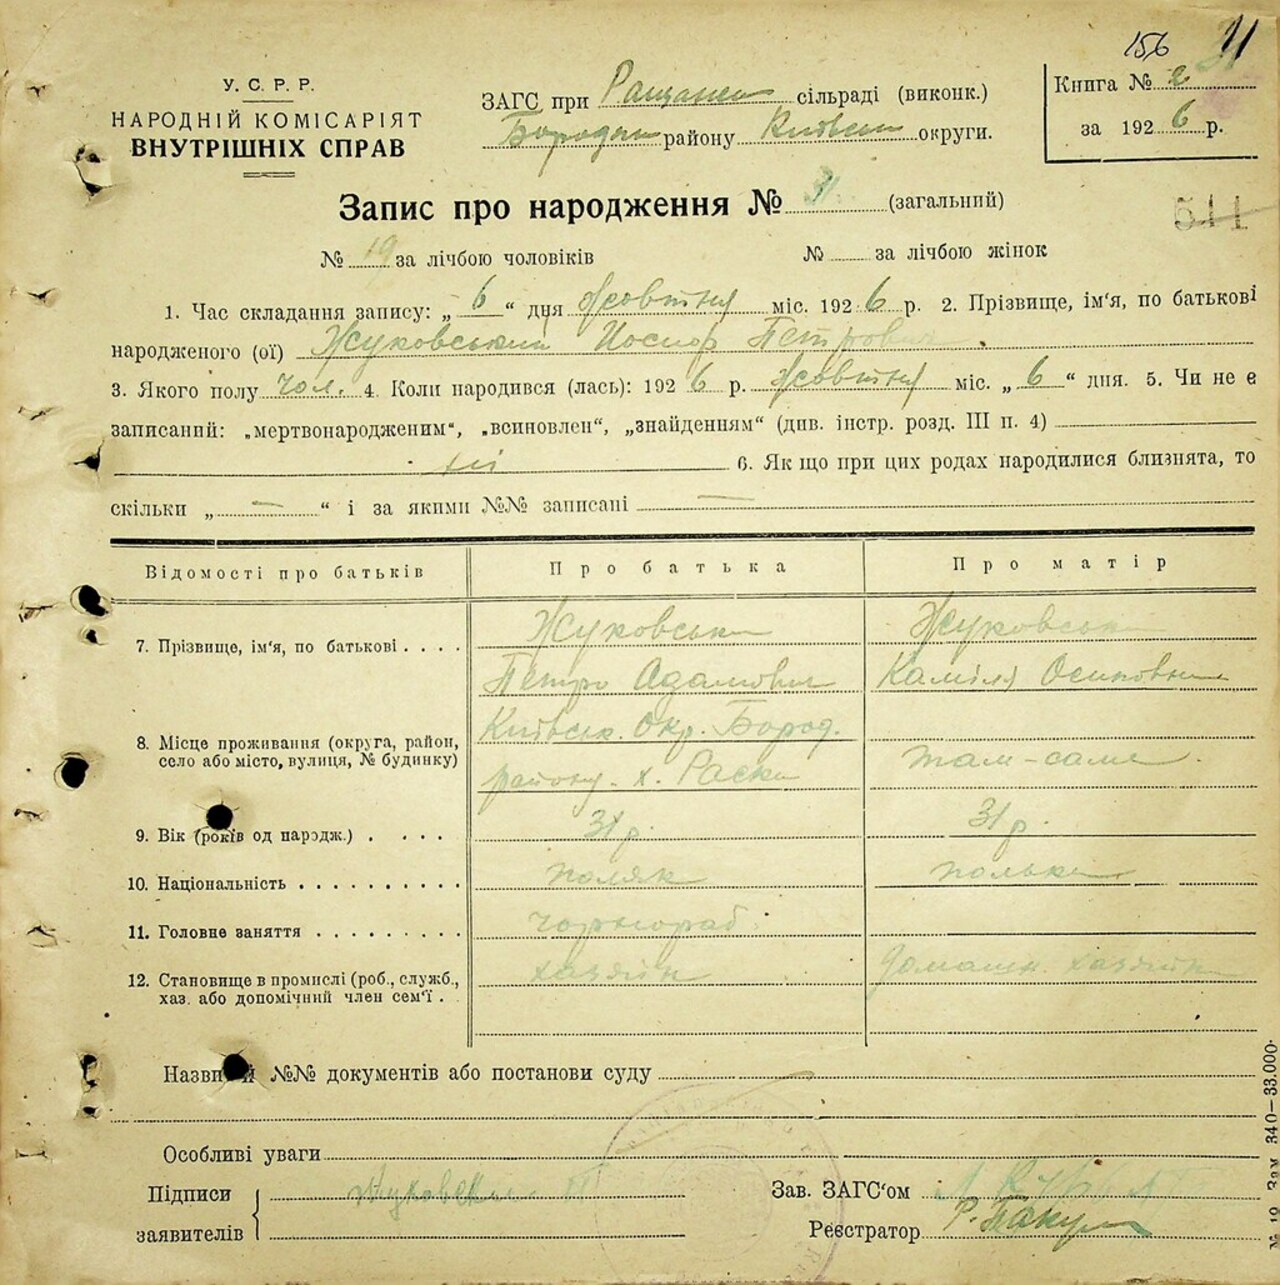 156 31
У. С. Р. Р.
НАРОДНІЙ КОМІСАРІЯТ
ВНУТРІШНІХ СПРАВ
ЗАГС при сільраді (виконк.)
Бородян району Київськ округи.
Книга № 2
за 1926 р.
Запис про народження № 31 (загальний)
511
№ 19 за лічбою чоловіків № за лічбою жінок
1. Час складання запису: „ 6 “ дня Жовтня міс. 1926 р. 2. Прізвище, ім'я, по батькові
народженого (ої) Жуковський Иосиф Петрович.
3. Якого полу чол. 4. Коли народився (лась): 1926 р. Жовтня міс. „ 6 “ дня. 5. Чи не є
записаний: „мертвонародженим“, „всиновлен“, „знайденням“ (див. інстр. розд. III п. 4)
ні 6. Як що при цих родах народилися близнята, то
скільки „ — “ і за якими №№ записані —
Відомості про батьків Про батька Про матір
7. Прізвище, ім'я, по батькові . . . . Жуковськи Жуковськ
Петро Адамович Каміля Осиповна
8. Місце проживання (округа, район, село або місто, вулиця, № будинку) Київськ. Окр. Бород.
району х. Раски там-саме.
9. Вік (років од народж.) . . . . 31 р. 31 р.
10. Національність . . . . . . . . . . поляк полька
11. Головне заняття . . . . . . . . . чорнораб.
12. Становище в промислі (роб., служб., хаз. або допомічний член сем'ї . . хазяїн домашн. хазяйк
Назви й №№ документів або постанови суду
Особливі уваги
Підписи
заявителів
Жуковски П
Зав. ЗАГС'ом
Реєстратор Р. Пакул
№ 19 Зам 340—33.000·